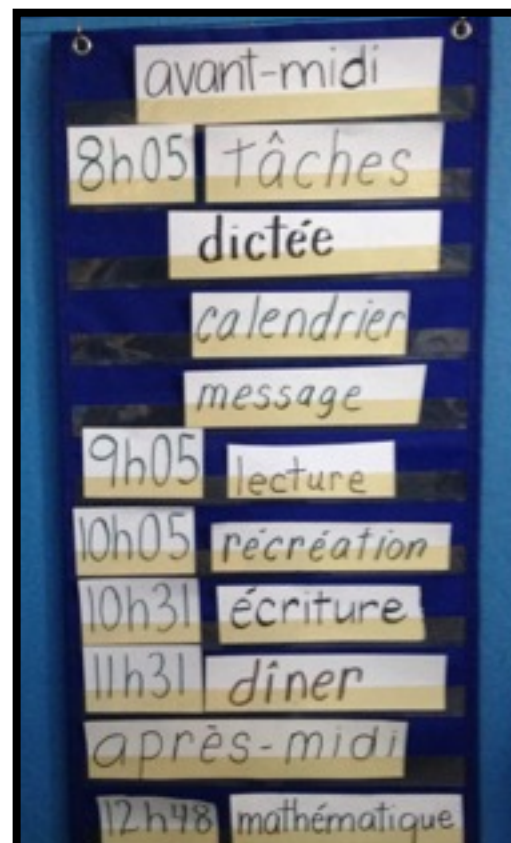 avant-midi
8h05 tâches
dictée
calendrier
message
9h05 lecture
10h05 récréation
10h31 écriture
11h31 dîner
après-midi
12h48 mathématique